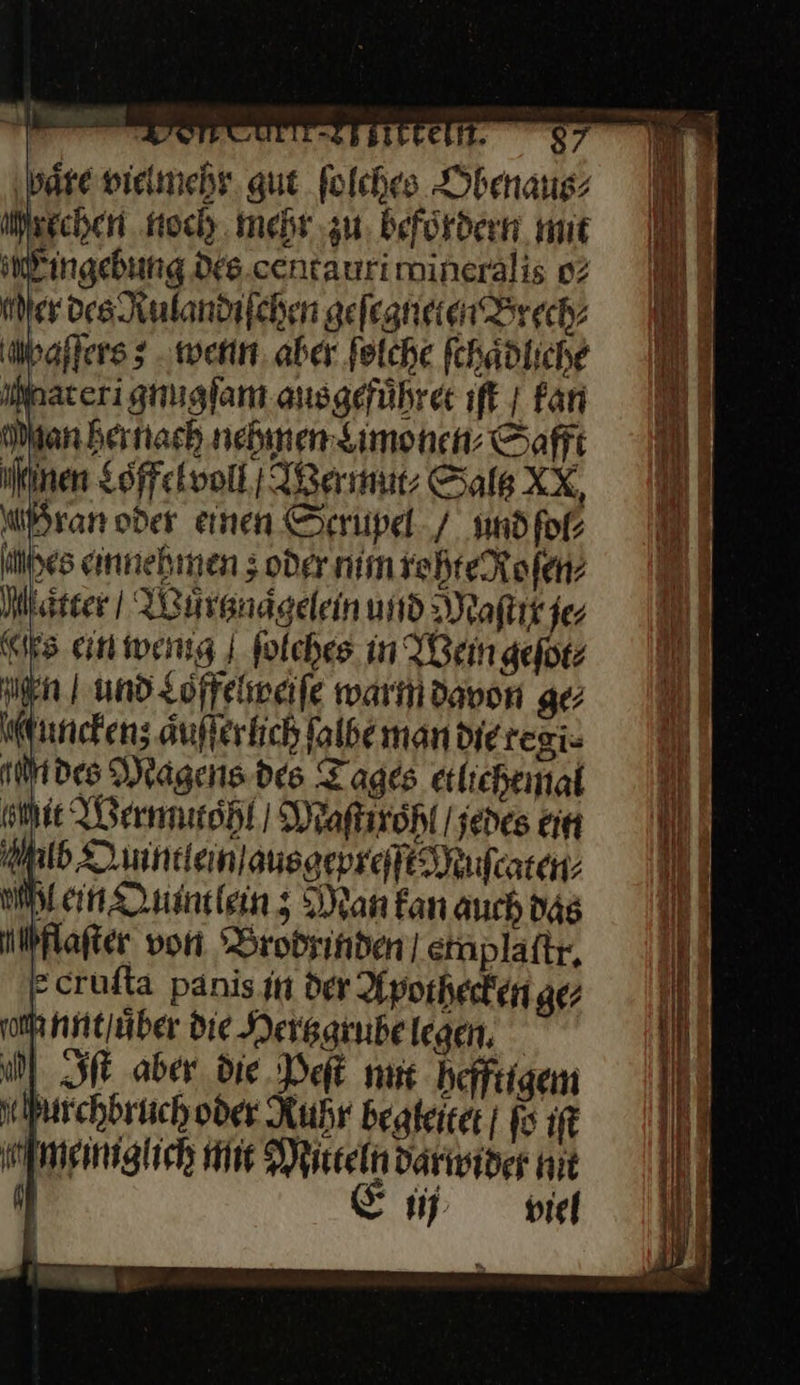 Von Curir-Mitteln. 87
väre vielmehr gut ſolches Obenaus⸗
brechen noch mehr zu befördern mit
Eingebung des centauri mineralis o⸗
der des Rulandiſchen geſegneten Brech⸗
waſſers; wenn aber ſolche ſchädliche
materi gnugſam ausgeführet iſt / kan
man hernach nehmen Limonen⸗Safft
einen Löffel voll / Wermut⸗Saltz XX,
Gran oder einen Scrupel / und ſol⸗
ches einnehmen; oder nim rohte Roſen⸗
blätter / Würtznägelein und Maſtix je⸗
des ein wenig / ſolches in Wein geſot⸗
ten / und Löffelweiſe warm davon ge⸗
trunckenz äuſſerlich ſalbe man die regi⸗
on des Magens des Tages etlichemal
mit Wermutöhl / Maſtixöhl / jedes ein
halb Quintlein / ausgepreſſt Muſcaten⸗
öhl ein Quintlein; Man kan auch das
Pflaſter von Brodrinden / emplaſtr.
e cruſta panis in der Apothecken ge⸗
nannt / über die Hertzgrube legen.
Iſt aber die Peſt mit hefftigem
Durchbruch oder Ruhr begleitet / ſo iſt
gemeiniglich mit Mitteln darwider nit
E iij viel